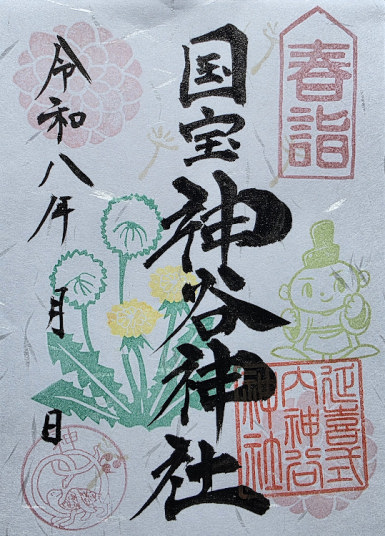 春詣
国宝
神谷神社
令和八年
月
日
延喜式
内神谷
神社
神